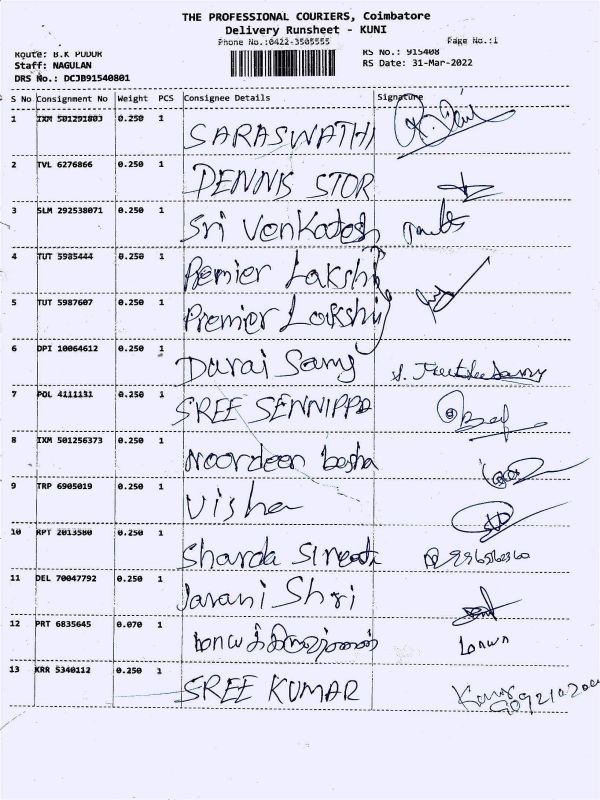 THE PROFESSIONAL COURIERS, Coimbatore
Delivery Runsheet - KUNI
Phone No.:0422-3505555 Page No.:1
Route: B.K PUDUR RS No.: 915408
Staff: NAGULAN RS Date: 31-Mar-2022
DRS No.: DCJB91540801
S No Consignment No Weight PCS Consignee Details Signature
1 IXM 501291803 0.250 1 SARASWATHI
2 TVL 6276866 0.250 1 DENNIS STOR
3 SLM 292538071 0.250 1 Sri Venkatesh
4 TUT 5985444 0.250 1 Premier Lakshi
5 TUT 5987607 0.250 1 Premier Lakshi
6 DPI 10064612 0.250 1 Durai Samy
7 POL 4111131 0.250 1 SREE SENNIPPA
8 IXM 501256373 0.250 1 Noordeen basha
9 TRP 6905019 0.250 1 Visha
10 RPT 2013580 0.250 1 Sharda
11 DEL 70047792 0.250 1 Janani Shri
12 PRT 6835645 0.070 1
13 KRR 5340112 0.250 1 SREE KUMAR